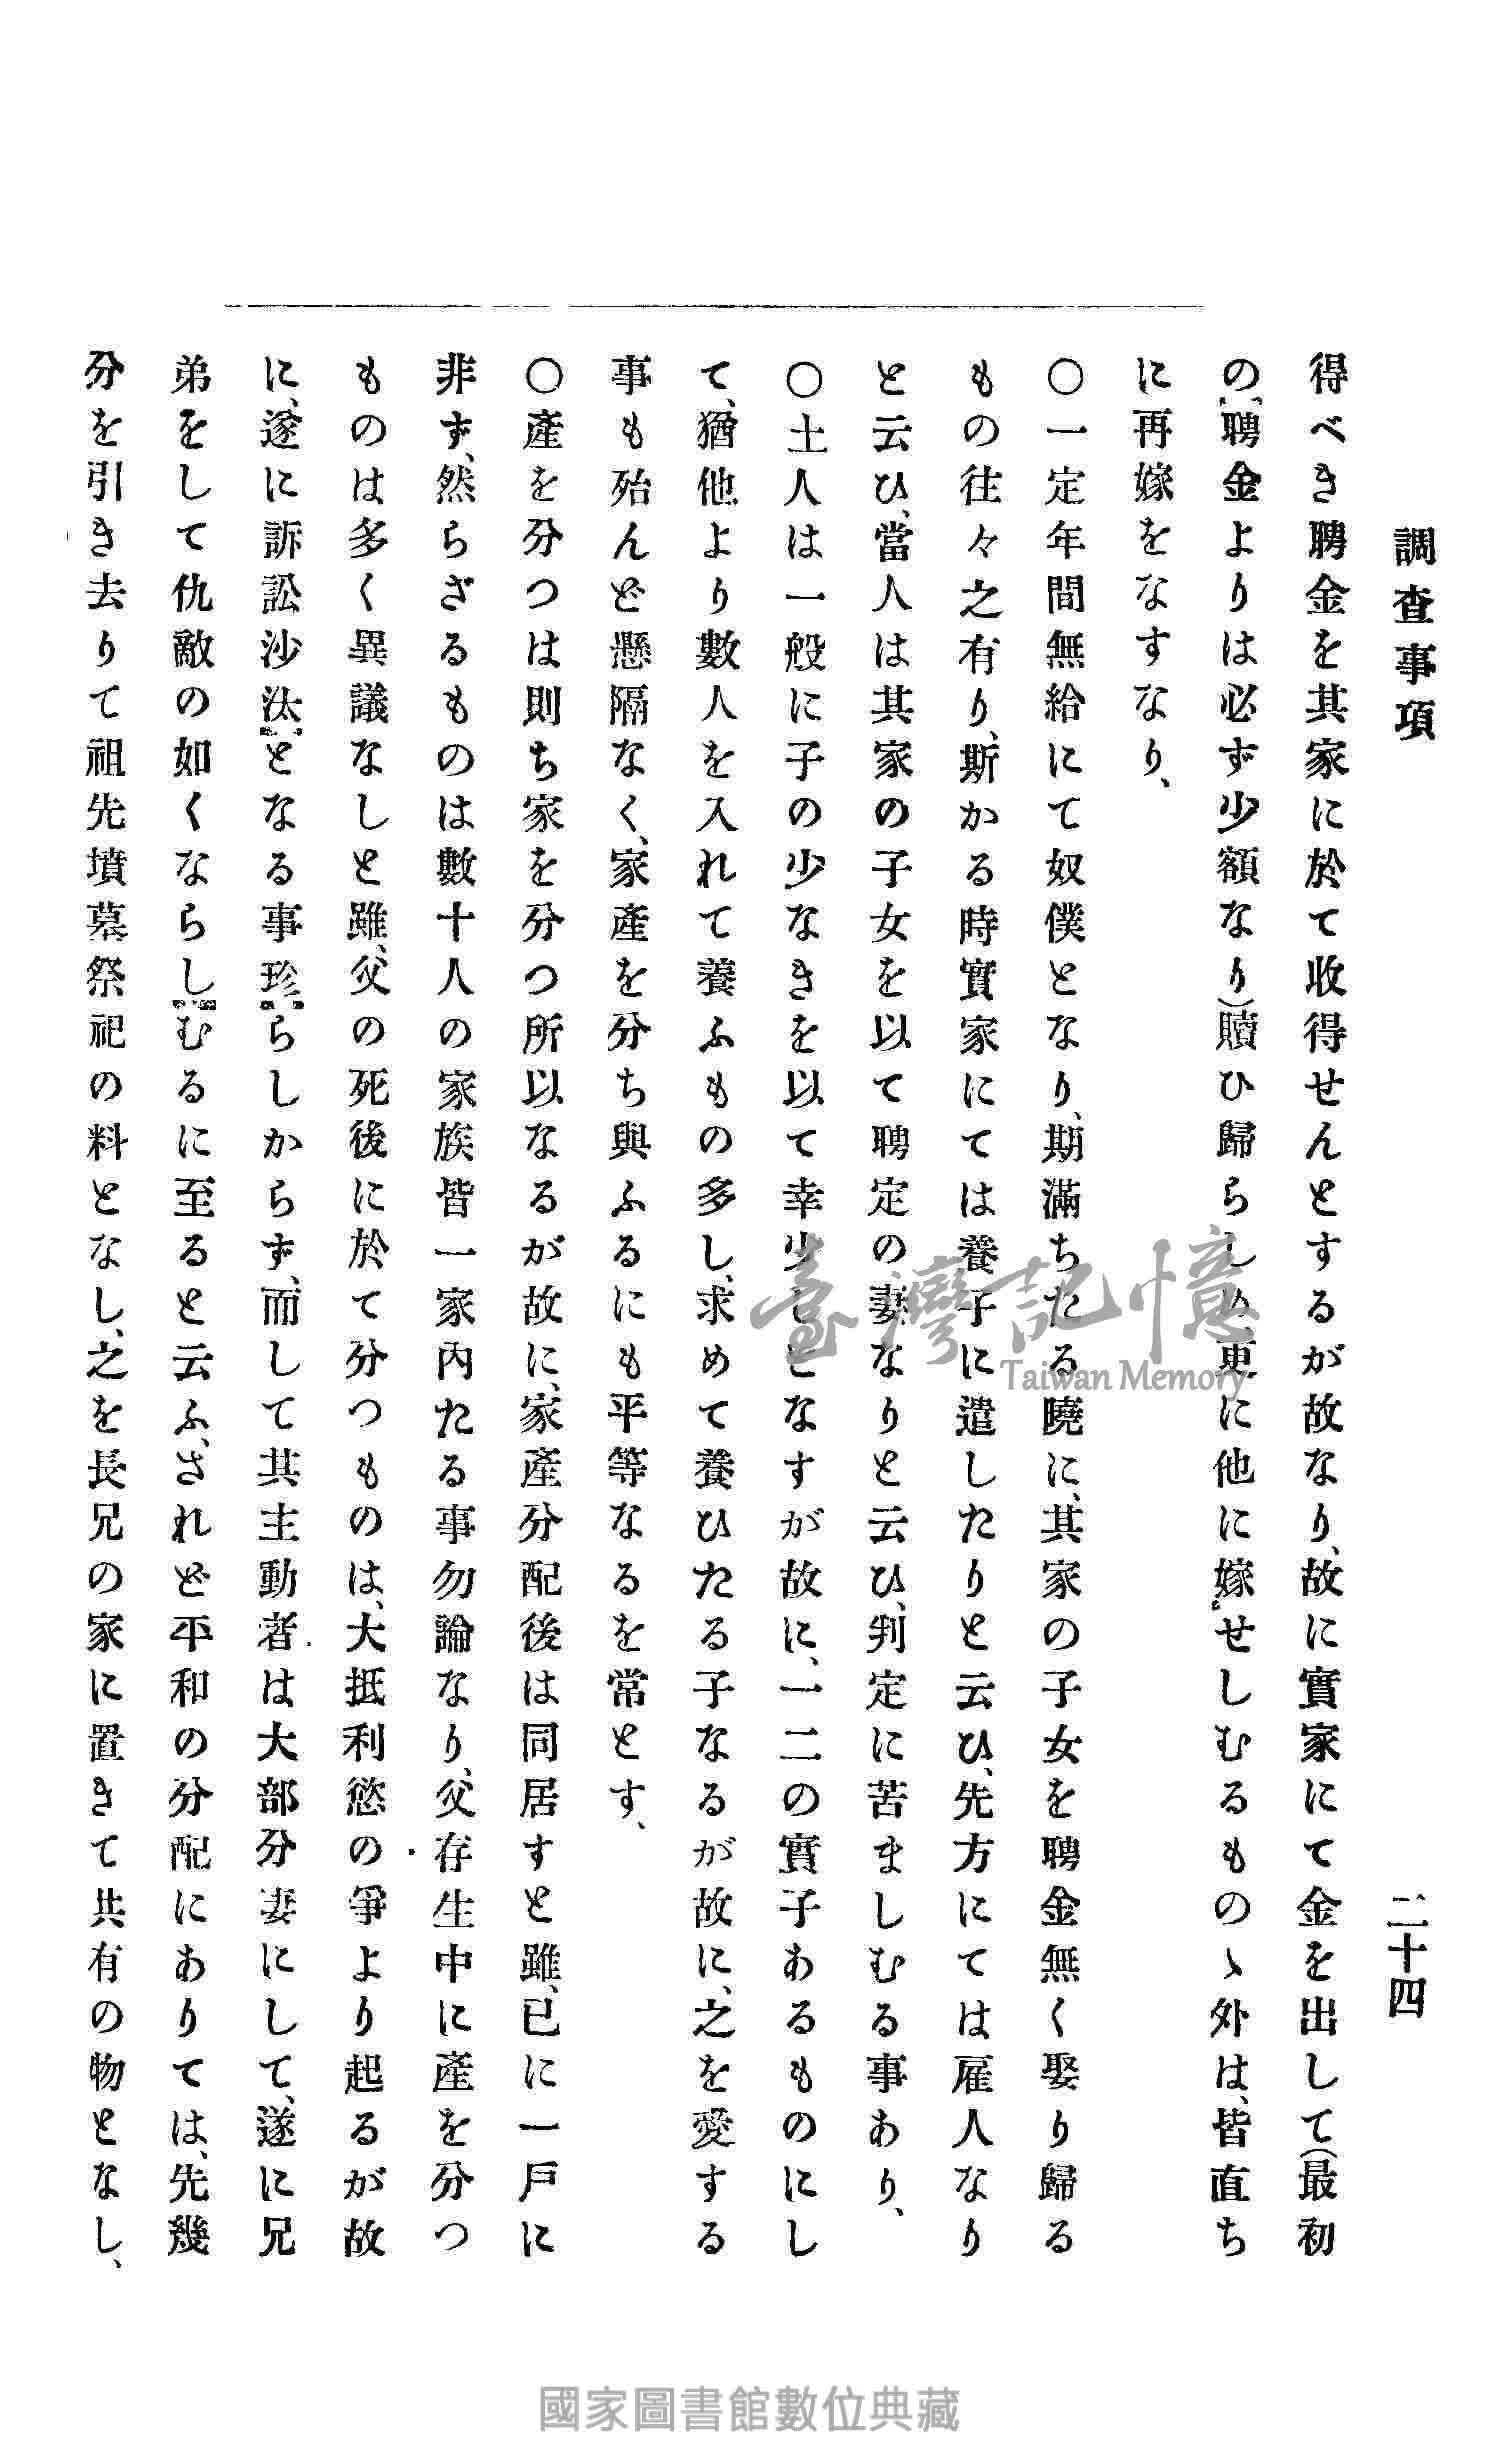 調査事項
二十四
得べき聘金を其家に於て收得せんとするが故なり、故に實家にて金を出して(最初
の聘金よりは必ず少額なり)贖ひ歸らしめ、更に他に嫁せしむるものゝ外は、皆直ち
に再嫁をなすなり、
〇一定年間無給にて奴僕となり、期滿ちたる曉に、其家の子女を聘金無く娶り歸る
もの往々之有り、斯かる時實家にては養子に遣したりと云ひ、先方にては雇人なり
と云ひ、當人は其家の子女を以て聘定の妻なりと云ひ、判定に苦ましむる事あり、
〇土人は一般に子の少なきを以て幸少しとなすが故に、一二の實子あるものにし
て、猶他より數人を入れて養ふもの多し、求めて養ひたる子なるが故に、之を愛する
事も殆んど懸隔なく、家產を分ち與ふるにも平等なるを常とす、
〇產を分つは則ち家を分つ所以なるが故に、家產分配後は同居すと雖、已に一戶に
非ず、然らざるものは數十人の家族皆一家內たる事勿論なり、父存生中に產を分つ
ものは多く異議なしと雖、父の死後に於て分つものは、大抵利慾の爭より起るが故
に、遂に訴訟沙汰となる事珍らしからず、而して其主動者は大部分妻にして、遂に兄
弟をして仇敵の如くならしむるに至ると云ふ、されど平和の分配にありては、先幾
分を引き去りて祖先墳墓祭祀の料となし、之を長兄の家に置きて共有の物となし、
臺灣記憶
Taiwan Memory
國家圖書館數位典藏